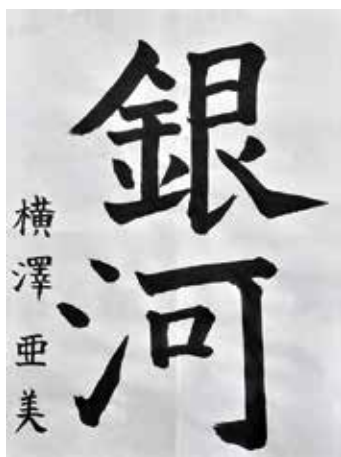 銀河
横澤亜美